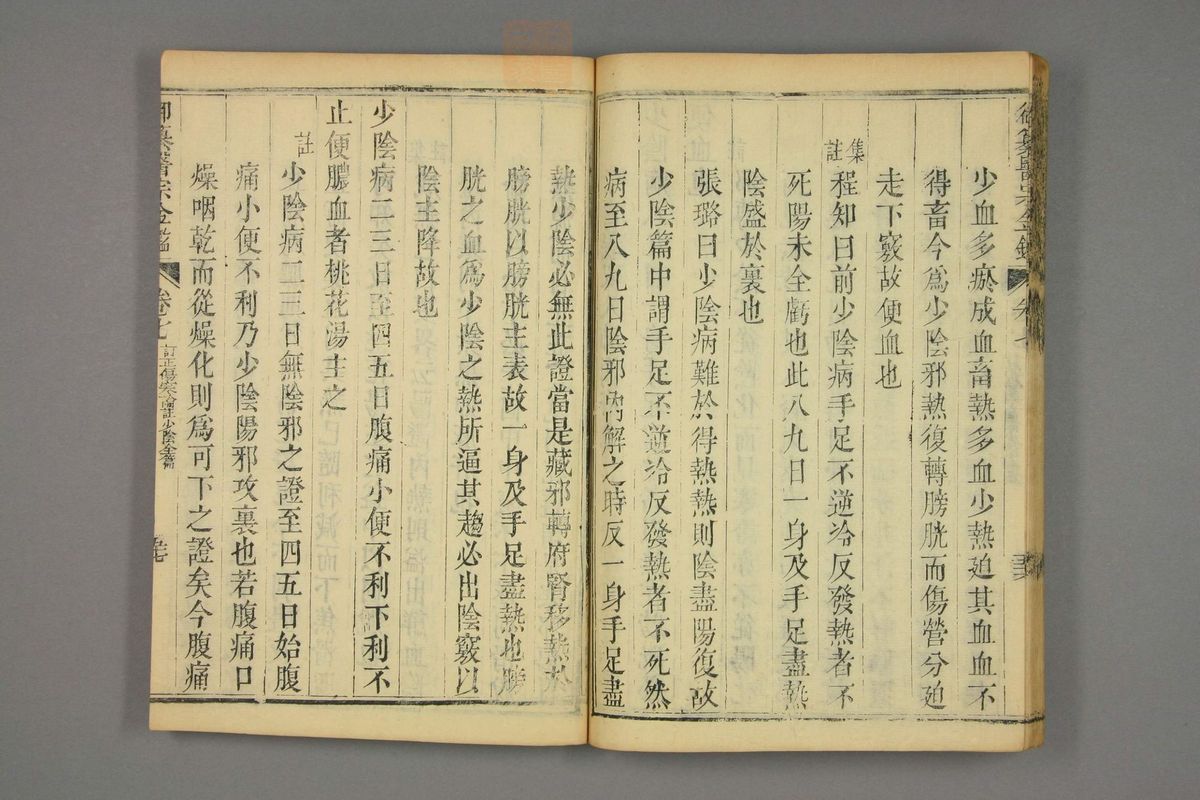 少血多瘀成血畜熱多血少熱廹其血血不
得畜今爲少陰邪熱復轉膀胱而傷營分廹
走下竅故便血也
集註
程知曰前少陰病手足不逆冷反發熱者不
死陽未全虧也此八九日一身及手足盡熱
陰盛於裏也
張璐曰少陰病難於得熱熱則陰盡陽復故
少陰篇中謂手足不逆冷反發熱者不死然
病至八九日陰邪內解之時反一身手足盡
熱少陰必無此證當是藏邪轉府腎移熱於
膀胱以膀胱主表故一身及手足盡熱也膀
胱之血爲少陰之熱所逼其趨必出陰竅以
陰主降故也
少陰病二三日至四五日腹痛小便不利下利不
止便膿血者桃花湯主之
註
少陰病二三日無陰邪之證至四五日始腹
痛小便不利乃少陰陽邪攻裏也若腹痛口
燥咽乾而從燥化則爲可下之證矣今腹痛
御纂醫宗金鑑
卷七
訂正傷寒論註少陰全篇